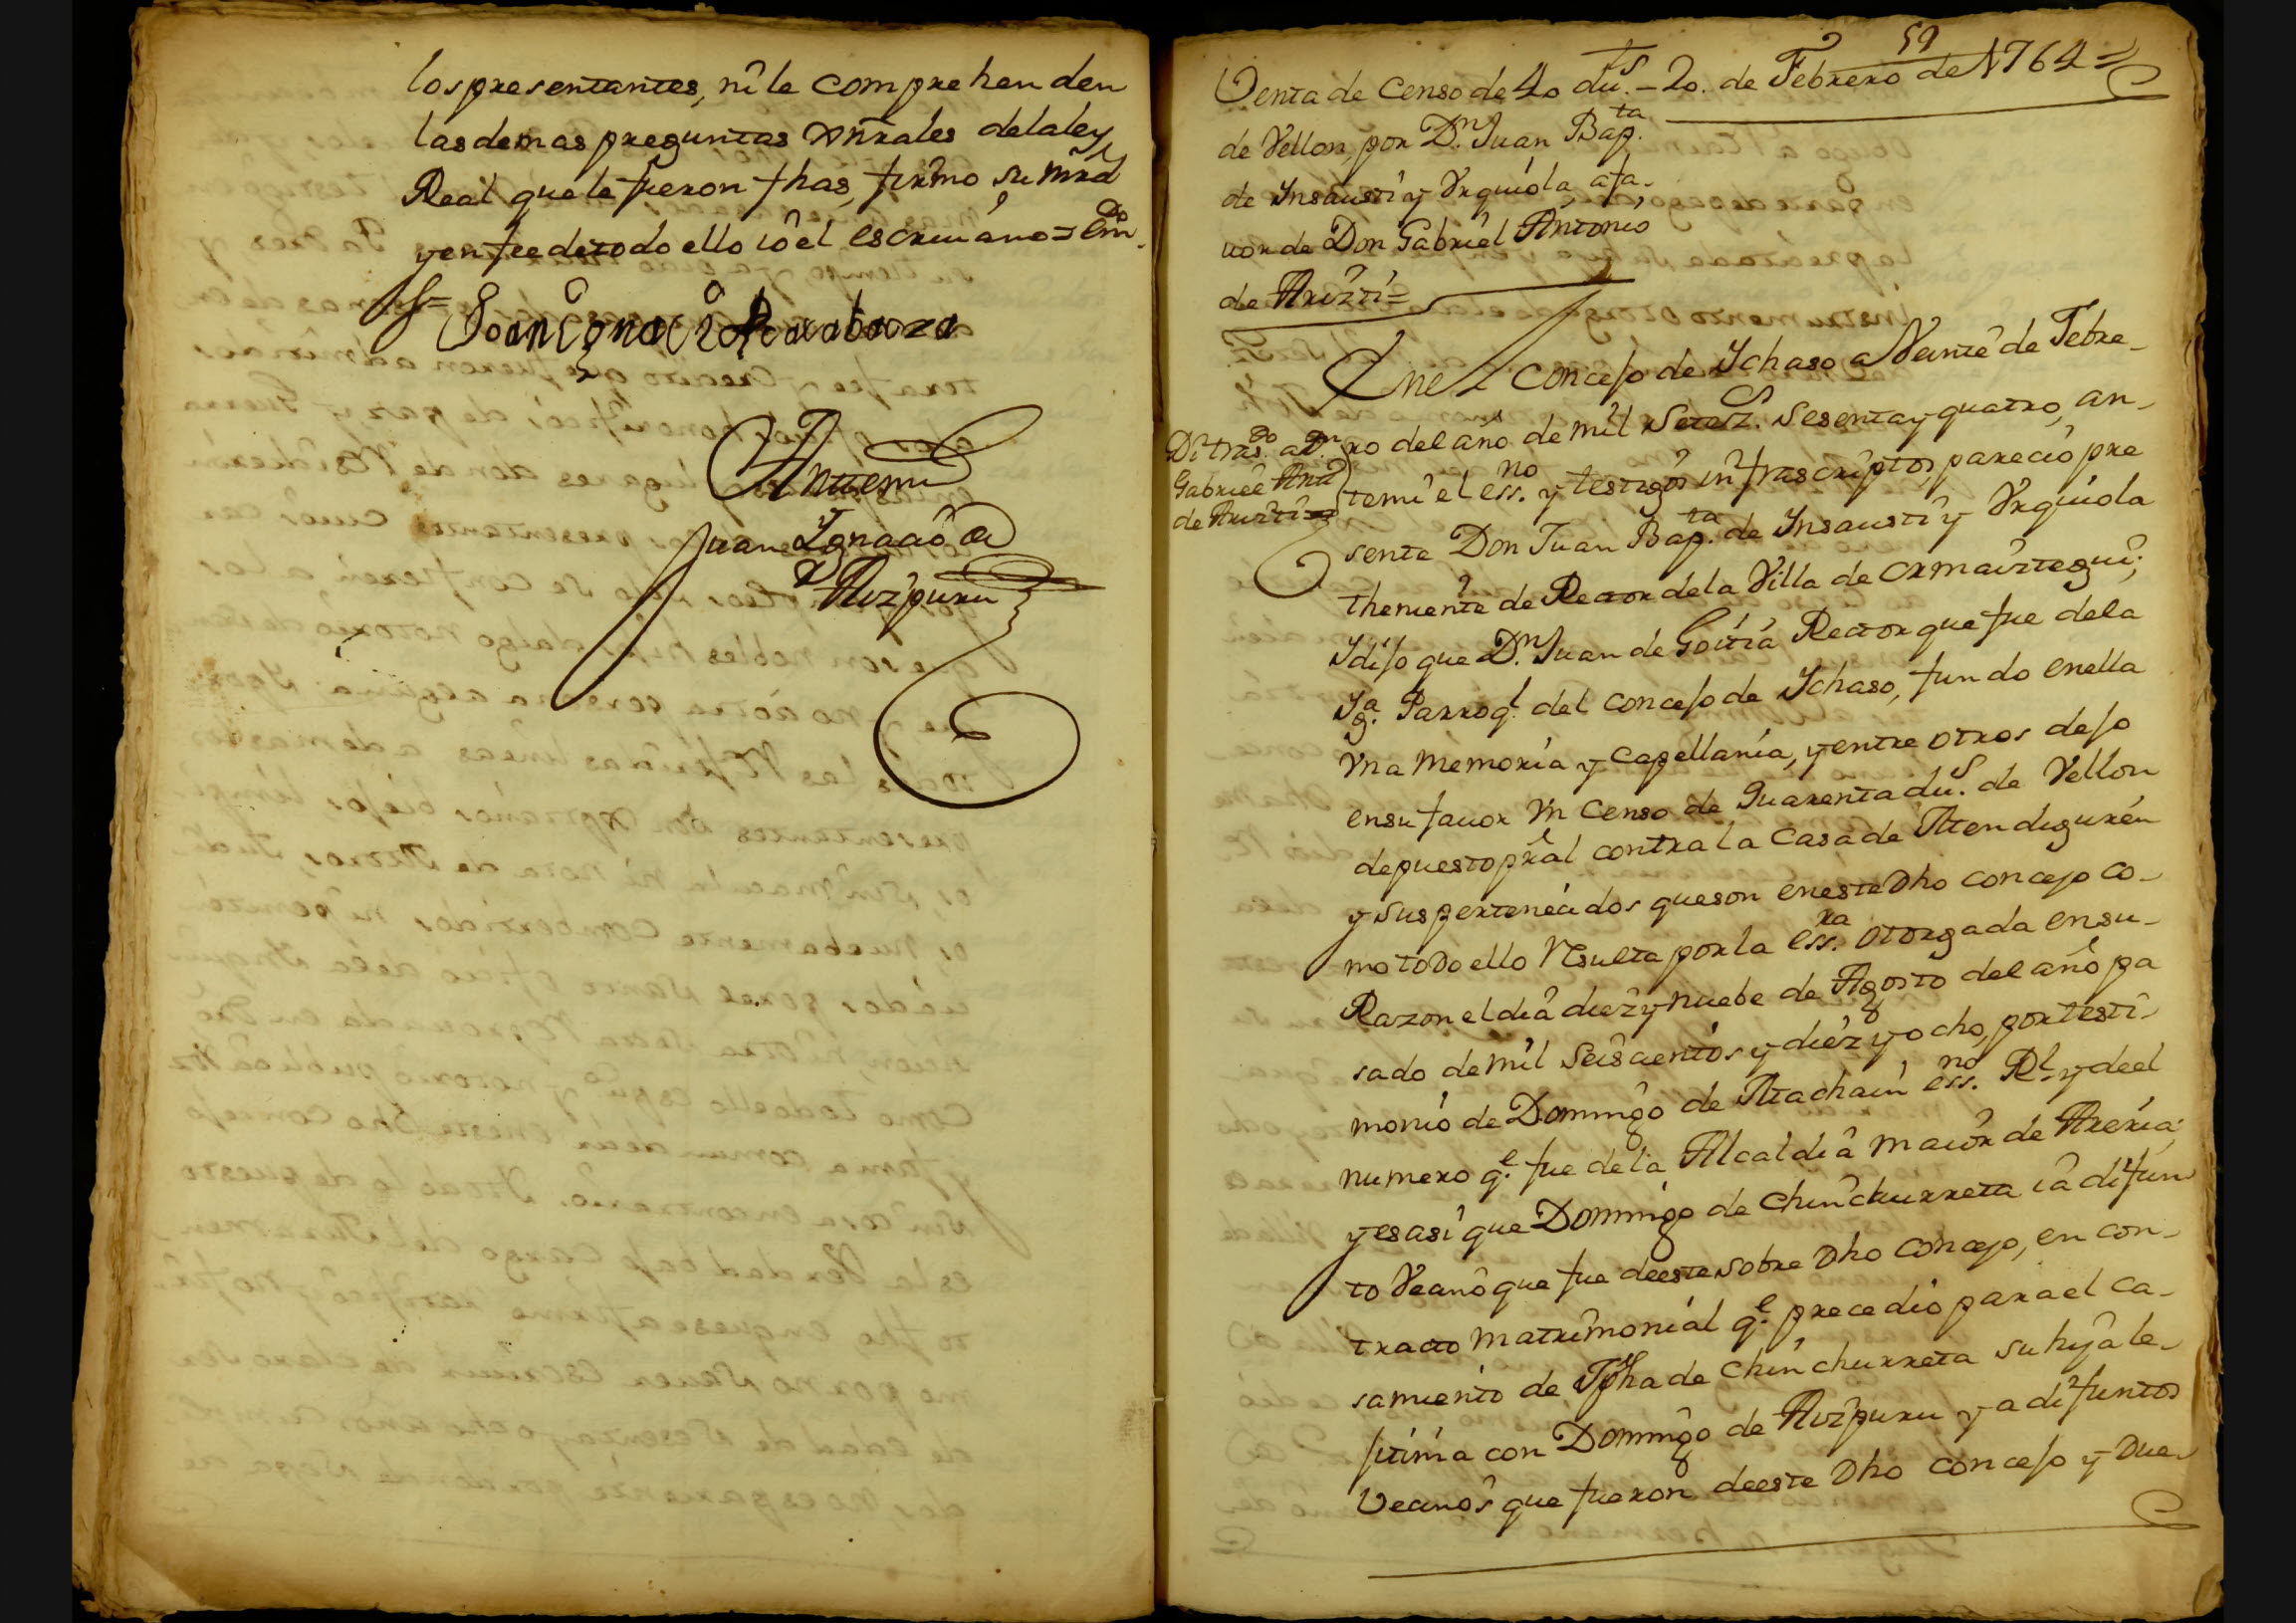 los presentantes, ni le comprehenden
las demas preguntas xñrales de la ley
Real que le fueron fhas, firmo su mrd
y en fee de todo ello io el escriuano = Em.do
Juan Ignaci
Antemi
Juan Ignacio de
Aizpuru
59
Venta de Censo de 40 du.s – 20. de Febrero de 1764 =
de Vellon, por D.n Juan Bap.ta
de Insausti y Vrquiola, a fa-
uor de Don Gabriel Antonio
de Arizti =
En el Concejo de Ichaso a Veinte de Febre-
Di tras.do a D.n
Gabriel Ant.
de Arizti
ro del año de mil Setez.s Sesenta y quatro, an-
temi el ess.no y testigos infrascriptos, parecio pre
sente Don Juan Bap.ta de Insausti y Vrquiola
theniente de Rector de la Villa de Ormaiztegui;
I dijo que D.n Juan de Goitia Rector que fue de la
Yg.a Parroq.l del concejo de Ichaso, fundo en ella
Vna Memoria y Capellania, y entre otros dejo
en su fauor Vn Censo de Quarenta du.s de Vellon
de puesto pral contra la Casa de Atendiguren
y sus pertenecidos que son en este Dho concejo co-
mo todo ello Resulta por la ess.ra otorgada en su-
Razon el dia diez y nuebe de Agosto del año pa
sado de mil Seiscientos y diez y ocho, por testi-
monio de Domingo de Atachain ess.no R.l y de el
numero q.e fue de la Alcaldia maior de Areria;
y es asi que Domingo de Chinchurreta ia difun
to Vecino que fue de este sobre Dho Concejo, en con-
tracto matrimonial q.e precedio para el Ca-
samiento de Jpha de Chinchurreta su hija le-
jitima con Domingo de Aizpuru ya difuntos
Vecinos que fueron de este Dho concejo y Due-